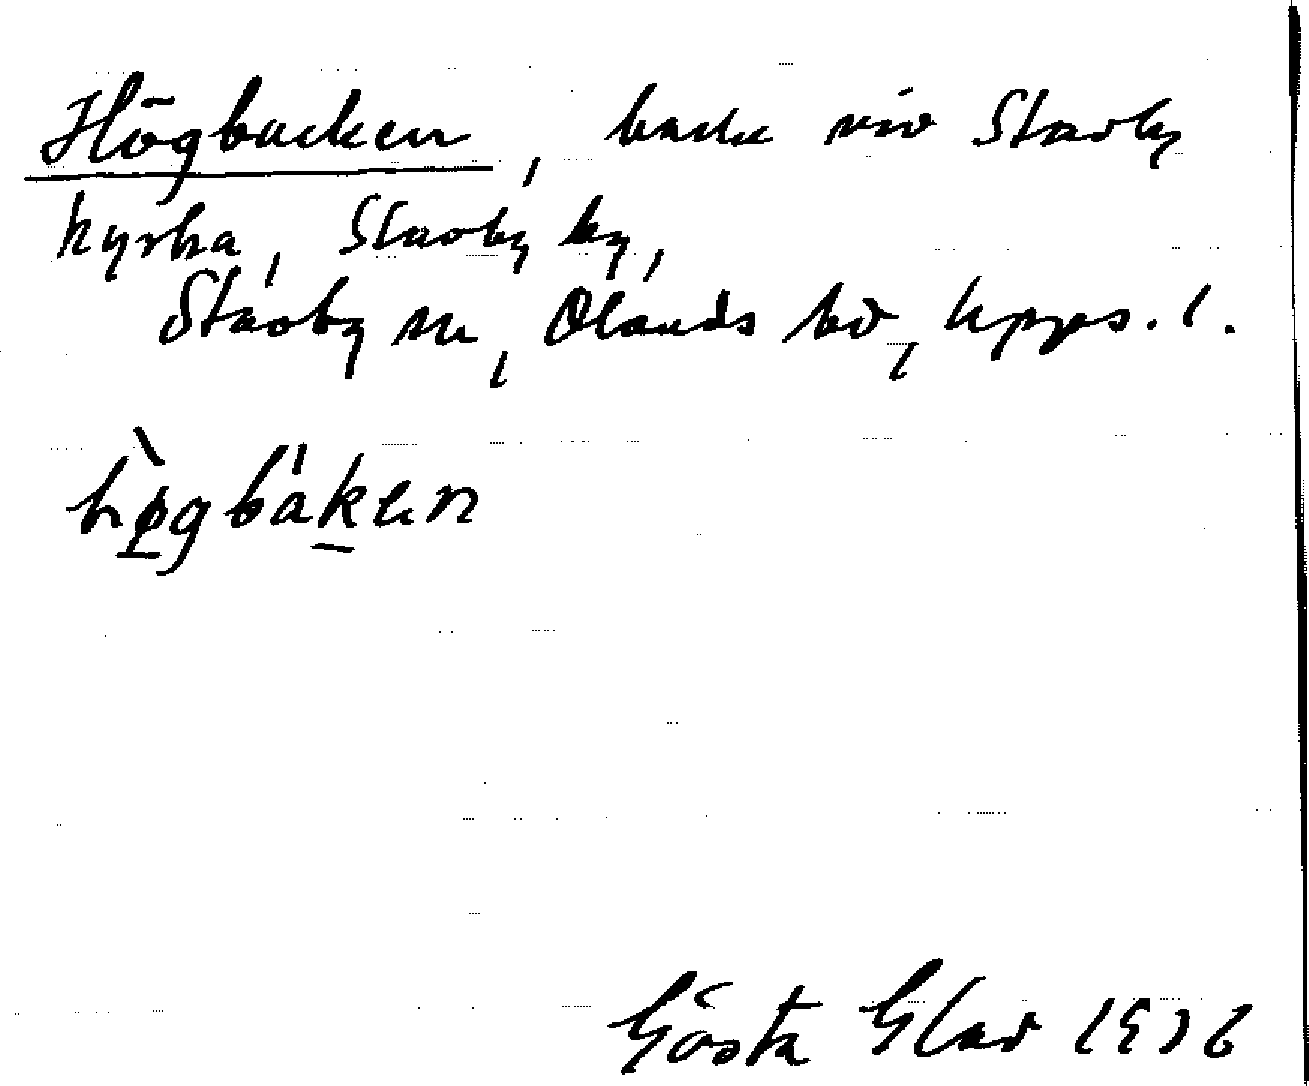 Högbacken, backe vid Stavby
kyrka, Stavby by,
Stavby sn, Olands hd, Upps. l.
hø̀gbáken
Gösta Glad 1936